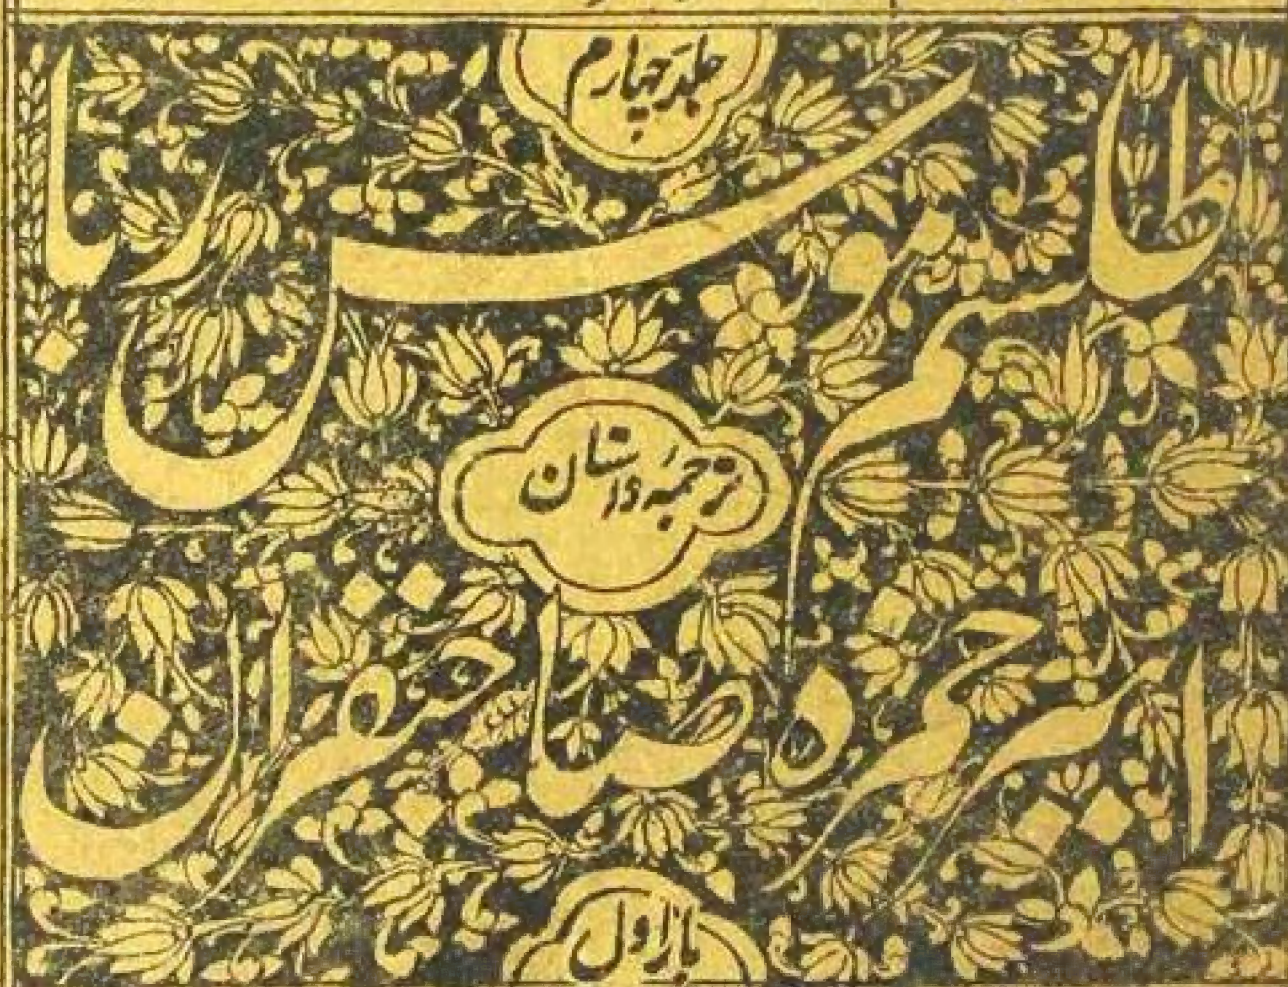 جلد چہارم
طلسم ہوش ربا
ترجمہ داستان
امیر حمزہ صاحبقران
بار اول